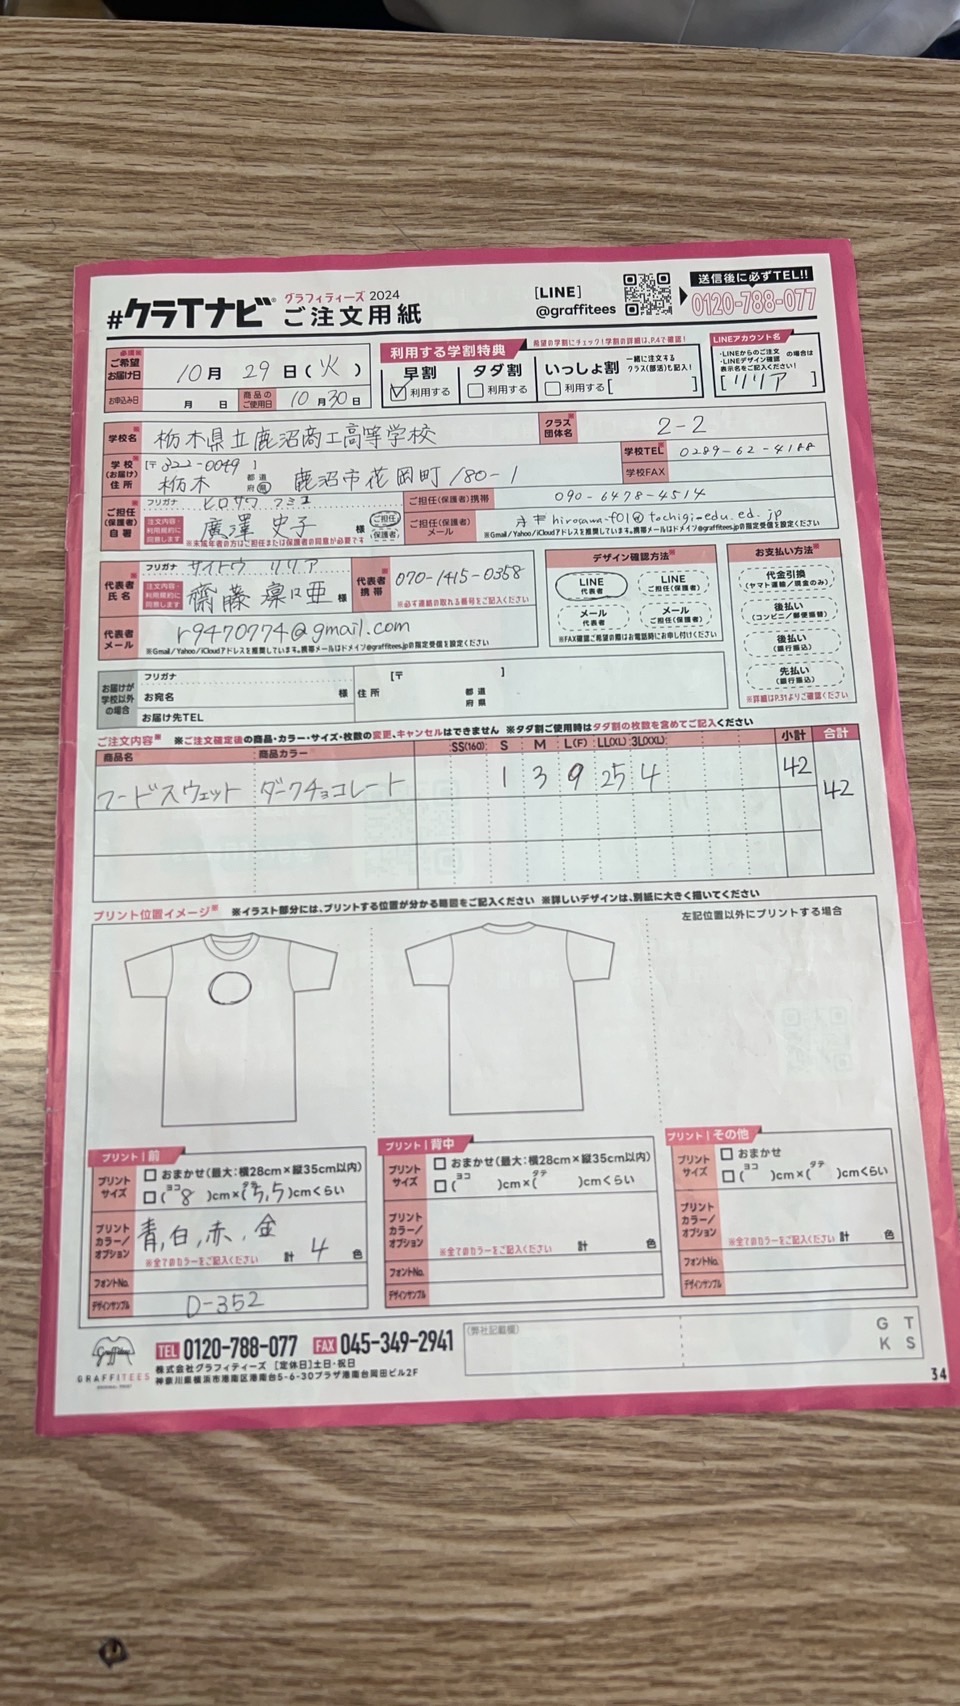 #クラTナビ グラフィティーズ 2024 ご注文用紙
[LINE] @graffitees
送信後に必ずTEL!! 0120-788-077
必須 ご希望お届け日 10月29日(火)
お申込み日 月 日 商品のご使用日 10月30日
利用する学割特典 希望の学割にチェック!学割の詳細は、P.4で確認!
早割 利用する
タダ割 利用する
いっしょ割 一緒に注文するクラス(部活)も記入! 利用する[ ]
LINEアカウント名
・LINEからのご注文
・LINEデザイン確認 の場合は
表示名をご記入ください!
[リリア]
学校名 栃木県立鹿沼商工高等学校
クラス団体名 2-2
学校(お届け)住所 [〒322-0049]
栃木 都道府県 鹿沼市花岡町180-1
学校TEL 0289-62-4188
学校FAX
ご担任(保護者)自署 フリガナ ヒロサワ フミコ
注文内容・利用規約に同意します 廣澤 史子 様 ご担任 保護者
※未成年者の方はご担任または保護者の同意が必要です
ご担任(保護者)携帯 090-6478-4514
ご担任(保護者)メール hirosawa-f01@tochigi-edu.ed.jp
※Gmail/Yahoo/iCloudアドレスを推奨しています。携帯メールはドメイン@graffitees.jpの指定受信を設定ください
代表者氏名 フリガナ サイトウ リリア
注文内容・利用規約に同意します 齋藤 凜口亜 様
代表者携帯 070-1415-0358
※必ず連絡の取れる番号をご記入ください
代表者メール r9470774@gmail.com
※Gmail/Yahoo/iCloudアドレスを推奨しています。携帯メールはドメイン@graffitees.jpの指定受信を設定ください
デザイン確認方法
LINE 代表者
LINE ご担任(保護者)
メール 代表者
メール ご担任(保護者)
※FAX確認ご希望の際はお電話時にお申し付けください
お支払い方法
代金引換 (ヤマト運輸/現金のみ)
後払い (コンビニ/郵便振替)
後払い (銀行振込)
先払い (銀行振込)
※詳細はP.31よりご確認ください
お届けが学校以外の場合 フリガナ
お宛名 様 住所 [〒 ] 都道府県
お届け先TEL
ご注文内容 ※ご注文確定後の商品・カラー・サイズ・枚数の変更、キャンセルはできません ※タダ割ご使用時はタダ割の枚数を含めてご記入ください
商品名 商品カラー SS(160) S M L(F) LL(XL) 3L(XXL) 小計 合計
フードスウェット ダークチョコレート 1 3 9 25 4 42 42
プリント位置イメージ ※イラスト部分には、プリントする位置が分かる略図をご記入ください ※詳しいデザインは、別紙に大きく描いてください
左記位置以外にプリントする場合
プリント|前
プリントサイズ おまかせ(最大:横28cm×縦35cm以内)
(ヨコ 8 )cm×(タテ 5,5)cmくらい
プリントカラー/オプション 青,白,赤,金
※全てのカラーをご記入ください 計 4 色
フォントNo.
デザインサンプル D-352
プリント|背中
プリントサイズ おまかせ(最大:横28cm×縦35cm以内)
(ヨコ )cm×(タテ )cmくらい
プリントカラー/オプション
※全てのカラーをご記入ください 計 色
フォントNo.
デザインサンプル
プリント|その他
プリントサイズ おまかせ
(ヨコ )cm×(タテ )cmくらい
プリントカラー/オプション
※全てのカラーをご記入ください 計 色
フォントNo.
デザインサンプル
GRAFFITEES
TEL 0120-788-077 FAX 045-349-2941
株式会社グラフィティーズ [定休日]土日・祝日
神奈川県横浜市港南区港南台5-6-30プラザ港南台岡田ビル2F
(弊社記載欄)
G T
K S
34